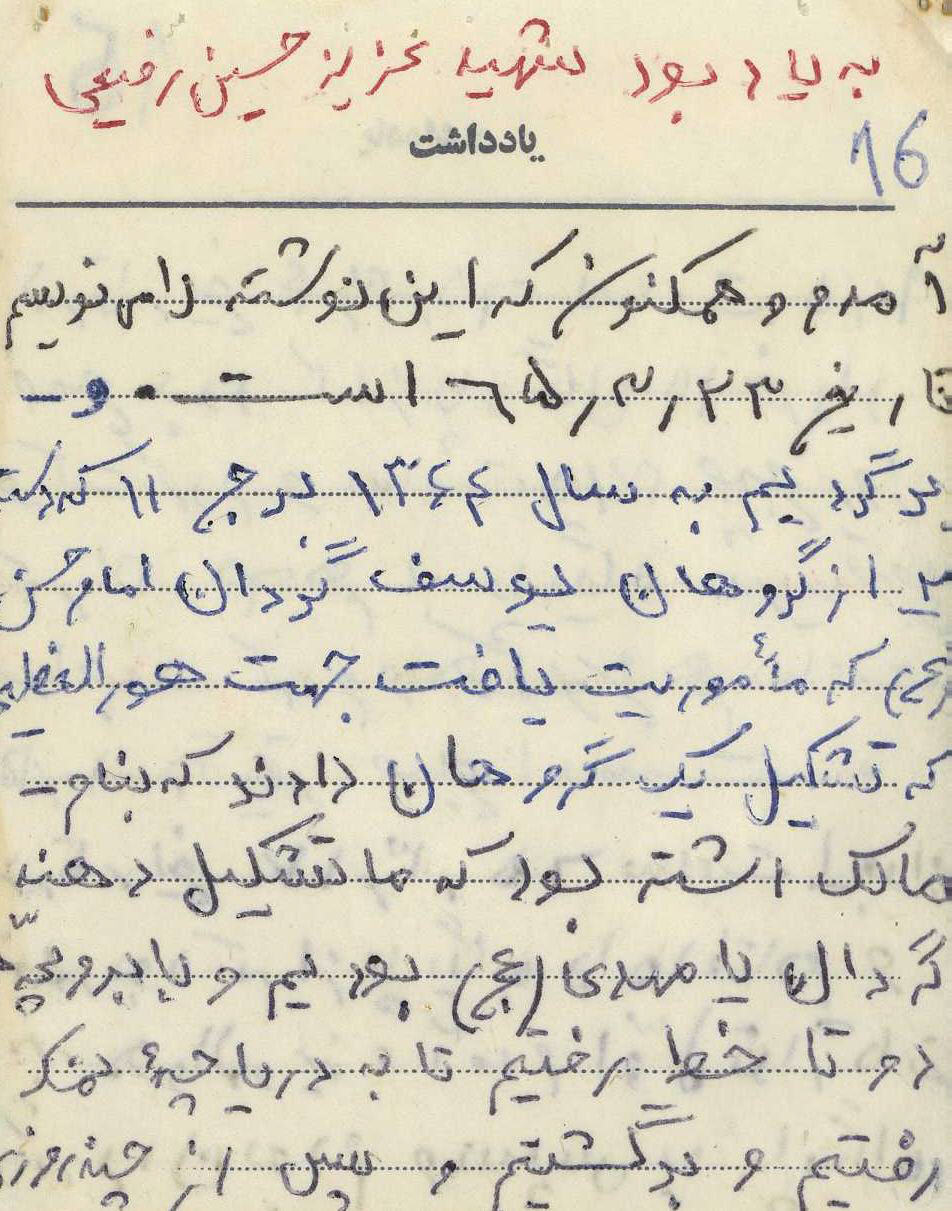 به یاد بود شهید عزیز حسین رفیعی
یادداشت
16
آمدم و همکنون که این نوشته را می نویسم
تاریخ ۶۵٫۳٫۲۳ است . و
برگردیم به سال ۱۳۶۴ برج ۱۱ که
از گروهان یوسف گردان امام حسن
که مأموریت یافت جهت هور
که تشکیل یک گروهان دادند که بنام
مالک اشتر بود که ما تشکیل دهنه
گردان یا مهدی (عج) بودیم و با
دو تا خط رفتیم تا به دریاچهٔ نمک
رفتیم و برگشتیم و سپس از چند روزی